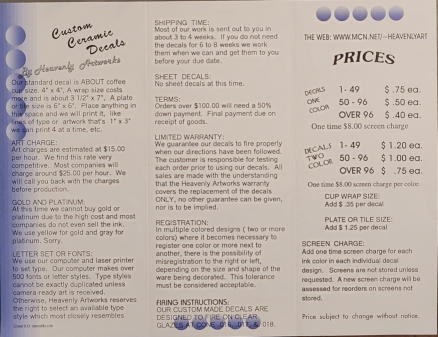 Custom
Ceramic
Decals
By Heavenly Artworks
Our standard decal is ABOUT coffee
cup size. 4" x 4", A wrap size costs
more and is about 3 1/2" x 7", A plate
or tile size is 6" x 6". Place anything in
this space and we will print it, like
lines of type or artwork that's 1" x 3"
we can print 4 at a time, etc.
ART CHARGE:
Art charges are estimated at $15.00
per hour. We find this rate very
competitive. Most companies will
charge around $25.00 per hour. We
will call you back with the charges
before production.
GOLD AND PLATINUM:
At this time we cannot buy gold or
platinum due to the high cost and most
companies do not even sell the ink.
We use yellow for gold and gray for
platinum. Sorry.
LETTER SET OR FONTS:
We use our computer and laser printer
to set type. Our computer makes over
500 fonts or letter styles. Type styles
cannot be exactly duplicated unless
camera-ready art is received.
Otherwise, Heavenly Artworks reserves
the right to select an available type
style which most closely resembles
SHIPPING TIME:
Most of our work is sent out to you in
about 3 to 4 weeks. If you do not need
the decals for 6 to 8 weeks we work
them when we can and get them to you
before your due date.
SHEET DECALS:
No sheet decals at this time.
TERMS:
Orders over $100.00 will need a 50%
down payment. Final payment due on
receipt of goods.
LIMITED WARRANTY:
We guarantee our decals to fire properly
when our directions have been followed.
The customer is responsible for testing
each order prior to using our decals. All
sales are made with the understanding
that the Heavenly Artworks warranty
covers the replacement of the decals
ONLY, no other guarantee can be given,
nor is to be implied.
REGISTRATION:
In multiple colored designs ( two or more
colors) where it becomes necessary to
register one color or more next to
another, there is the possibility of
misregistration to the right or left,
depending on the size and shape of the
ware being decorated. This tolerance
must be considered acceptable.
FIRING INSTRUCTIONS:
OUR CUSTOM MADE DECALS ARE
DESIGNED TO FIRE ON CLEAR
GLAZES AT CONE 016, 017, & 018.
THE WEB: WWW.MCN.NET/~HEAVENLYART
PRICES
DECALS 1 - 49 $ .75 ea.
ONE 50 - 96 $ .50 ea.
COLOR OVER 96 $ .40 ea.
One time $8.00 screen charge
DECALS 1 - 49 $ 1.20 ea.
TWO 50 - 96 $ 1.00 ea.
COLOR OVER 96 $ .75 ea.
One time $8.00 screen charge per color.
CUP WRAP SIZE:
Add $ .35 per decal
PLATE OR TILE SIZE:
Add $ 1.25 per decal
SCREEN CHARGE:
Add one time screen charge for each
ink color in each individual decal
design. Screens are not stored unless
requested. A new screen charge will be
assessed for reorders on screens not
stored.
Price subject to change without notice.